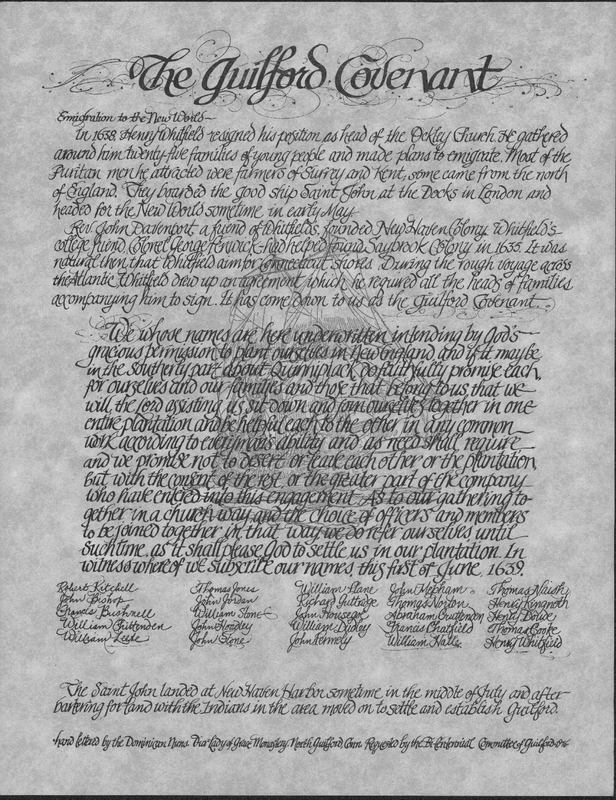 The Guilford Covenant
Emigration to the New World
In 1638 Henry Whitfield resigned his position as head of the Ockley Church. He gathered
around him twenty-five families of young people and made plans to emigrate. Most of the
Puritan men he attracted were farmers of Surrey and Kent, some came from the north
of England. They boarded the good ship Saint John at the Docks in London and
headed for the New World sometime in early May.
Rev. John Davenport, a friend of Whitfield's, founded New Haven Colony. Whitfield's
college friend, Colonel George Fenwick had helped found Saybrook Colony in 1635. It was
natural then that Whitfield aim for Connecticut shores. During the rough voyage across
the Atlantic Whitfield drew up an agreement, which he required all the heads of families
accompanying him to sign. It has come down to us as the Guilford Covenant.
We whose names are here underwritten intending by God's
gracious permission to plant ourselves in New England and if it may be
in the southerly part about Quinnipiack do faithfully promise each,
for ourselves and our families and those that belong to us, that we
will, the Lord assisting us, sit down and join ourselves together in one
entire plantation and be helpful each to the other in any common
work according to every man's ability and as need shall require
and we promise not to desert or leave each other or the plantation
but with the consent of the rest, or the greater part of the company
who have entered into this engagement. As to our gathering to-
gether in a church way and the choice of officers and members
to be joined together in that way we do refer ourselves until
such time, as it shall please God to settle us in our plantation. In
witness whereof we subscribe our names this first of June, 1639
Robert Kitchell Thomas Jones William Plane John Mepham Thomas Naish
John Bishop John Jordan Richard Guttridge Thomas Norton Henry Kingnoth
Francis Bushnell William Stone John Housegoe Abraham Cruttenden Henry Dowde
William Chittenden John Hoadley William Dudley Francis Chatfield Thomas Cooke
William Leete John Stone John Permely William Halle Henry Whitfield
The Saint John landed at New Haven Harbor sometime in the middle of July and after
bartering for land with the Indians in the area moved on to settle and establish Guilford.
hand lettered by the Dominican Nuns Our Lady of Grace Monastery North Guilford, Conn. Requested by the Bi-Centennial Committee of Guilford